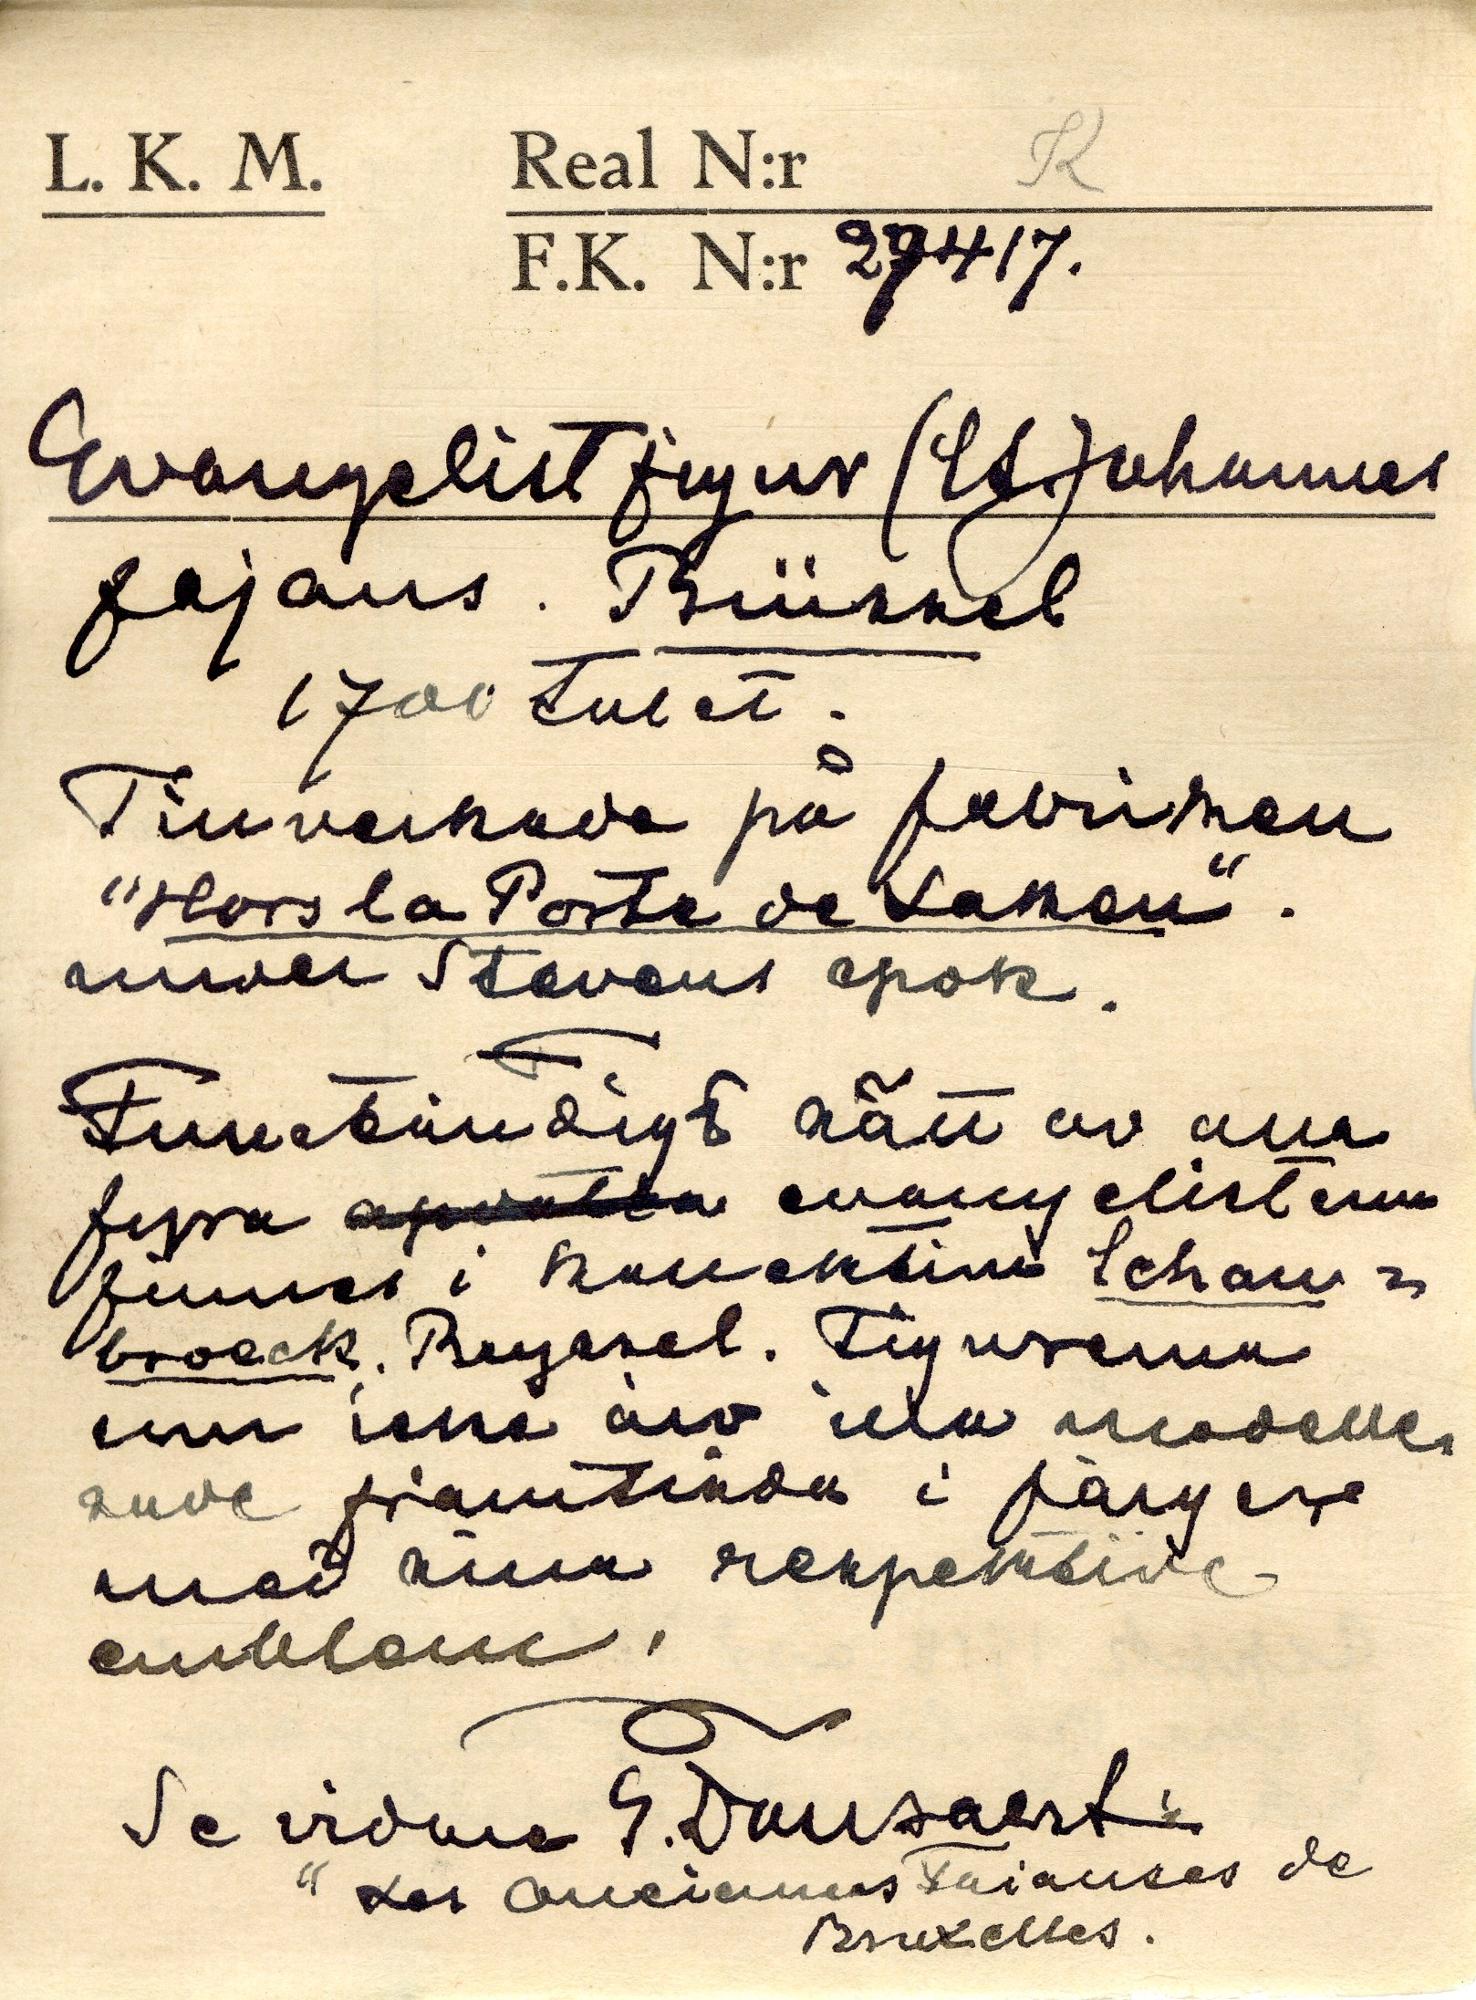 L. K. M. Real N:r K
F.K. N:r 27417.
Evangelistfigur (St. Johannes
fajans. Brüssel
1700 talet.
Tillverkade på fabriken
"Hors la Porte de Laken".
under Stevens epok.
Fullständigt sätt av alla
fyra evangelisterna
finnes i kollektion Schou =
broeck. Bryssel. Figurerna
äro illa modelle-
rade framställda i färger
med sina respektive
emblem.
Se vidare G. Dansaert:
"Les anciennes Faïanses de
Bruxelles.